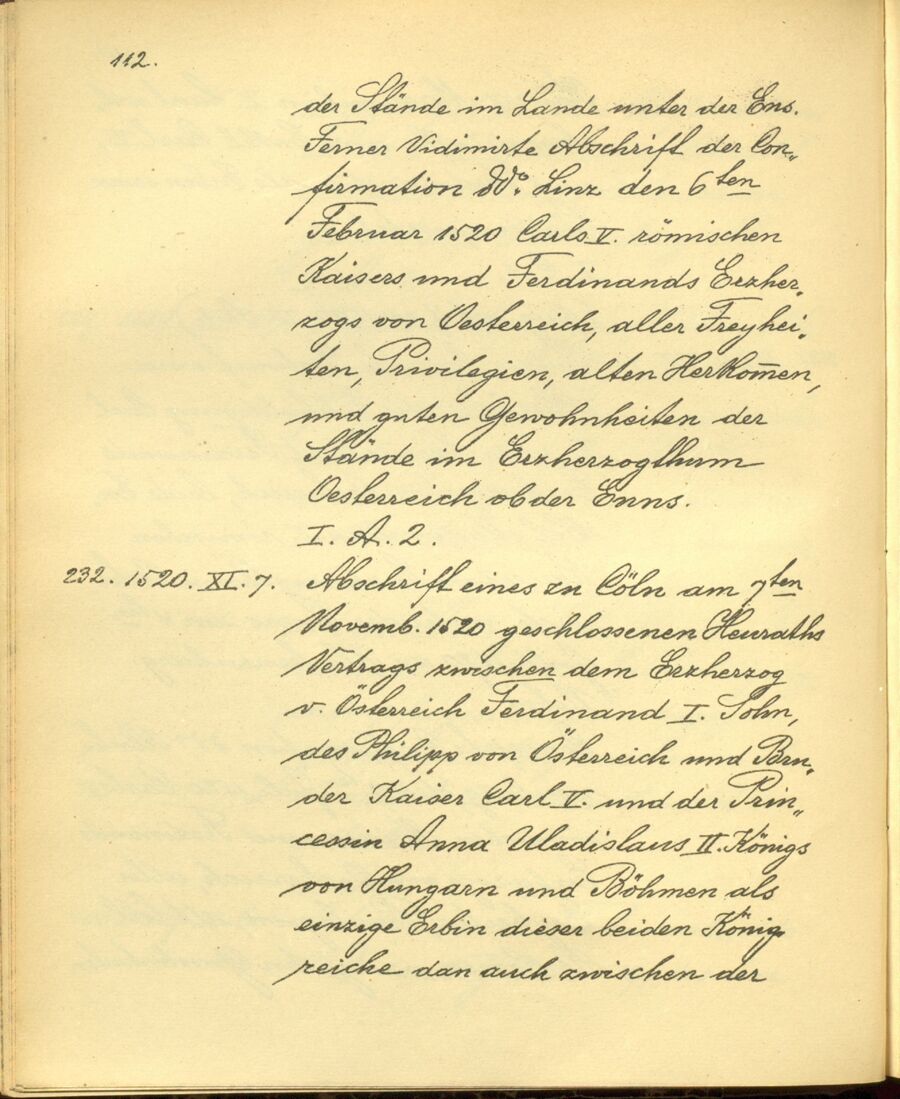 112.
der Stände im Lande unter der Ens.
Ferner Vidimirte Abschrift der Con„
firmation ddo. Linz den 6ten
Februar 1520 Carls V. römischen
Kaisers und Ferdinands Erzher„
zogs von Oesterreich, aller Freyhei„
ten, Privilegien, alten Herkom̅en,
und guten Gewohnheiten der
Stände im Erzherzogthum
Oesterreich ob der Enns.
I. A. 2.
232. 1520. XI. 7. Abschrift eines zu Cöln am 7ten
Novemb. 1520 geschlossenen Heuraths
Vertrags zwischen dem Erzherzog
v. Österreich Ferdinand I. Sohn,
des Philipp von Österreich und Bru„
der Kaiser Carl V. und der Prin„
cessin Anna Uladislaus II. Königs
von Hungarn und Böhmen als
einzige Erbin dieser beiden König
reiche dan auch zwischen der